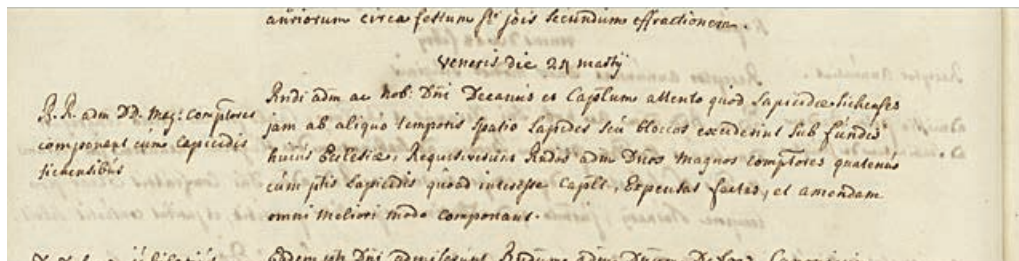 auriorum circa festum sti jois secundum effractionem.
Veneris die 24 martij
R. R. adm DD. Mag: comptores
component cum lapicidis
sichensibus
Rndi adm ac Nob: Dni Decanus et Caplum attento quod Lapicidae sichenses
jam ab aliquo temporis spatio Lapides seu bloccos exciderint sub fundis
huius Ecclesiae, Requisiverunt Rndos adm Dnos magnos comptores quatenus
cum ptis Lapicidis quoad interesse Capli, Expensas factas, et amendam
omni meliori modo componant.